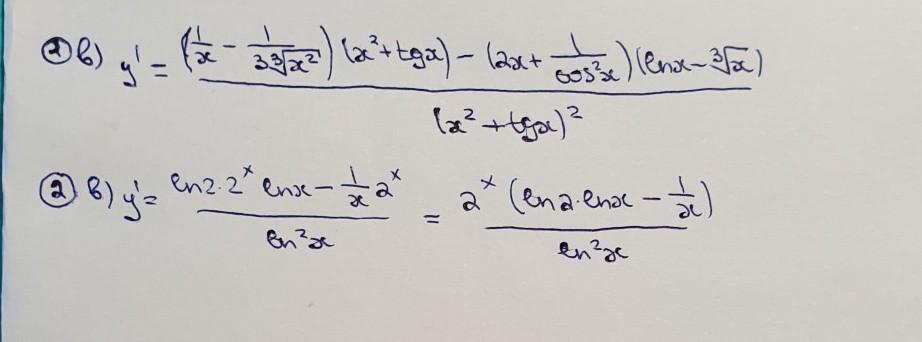 ① в) y' = ((1/x - 1/(3∛x²)) (x² + tgx) - (2x + 1/cos²x) (lnx - ∛x)) / (x² + tgx)²
② в) y' = (ln2·2ˣ lnx - 1/x 2ˣ) / ln²x = 2ˣ (ln2·lnx - 1/x) / ln²x